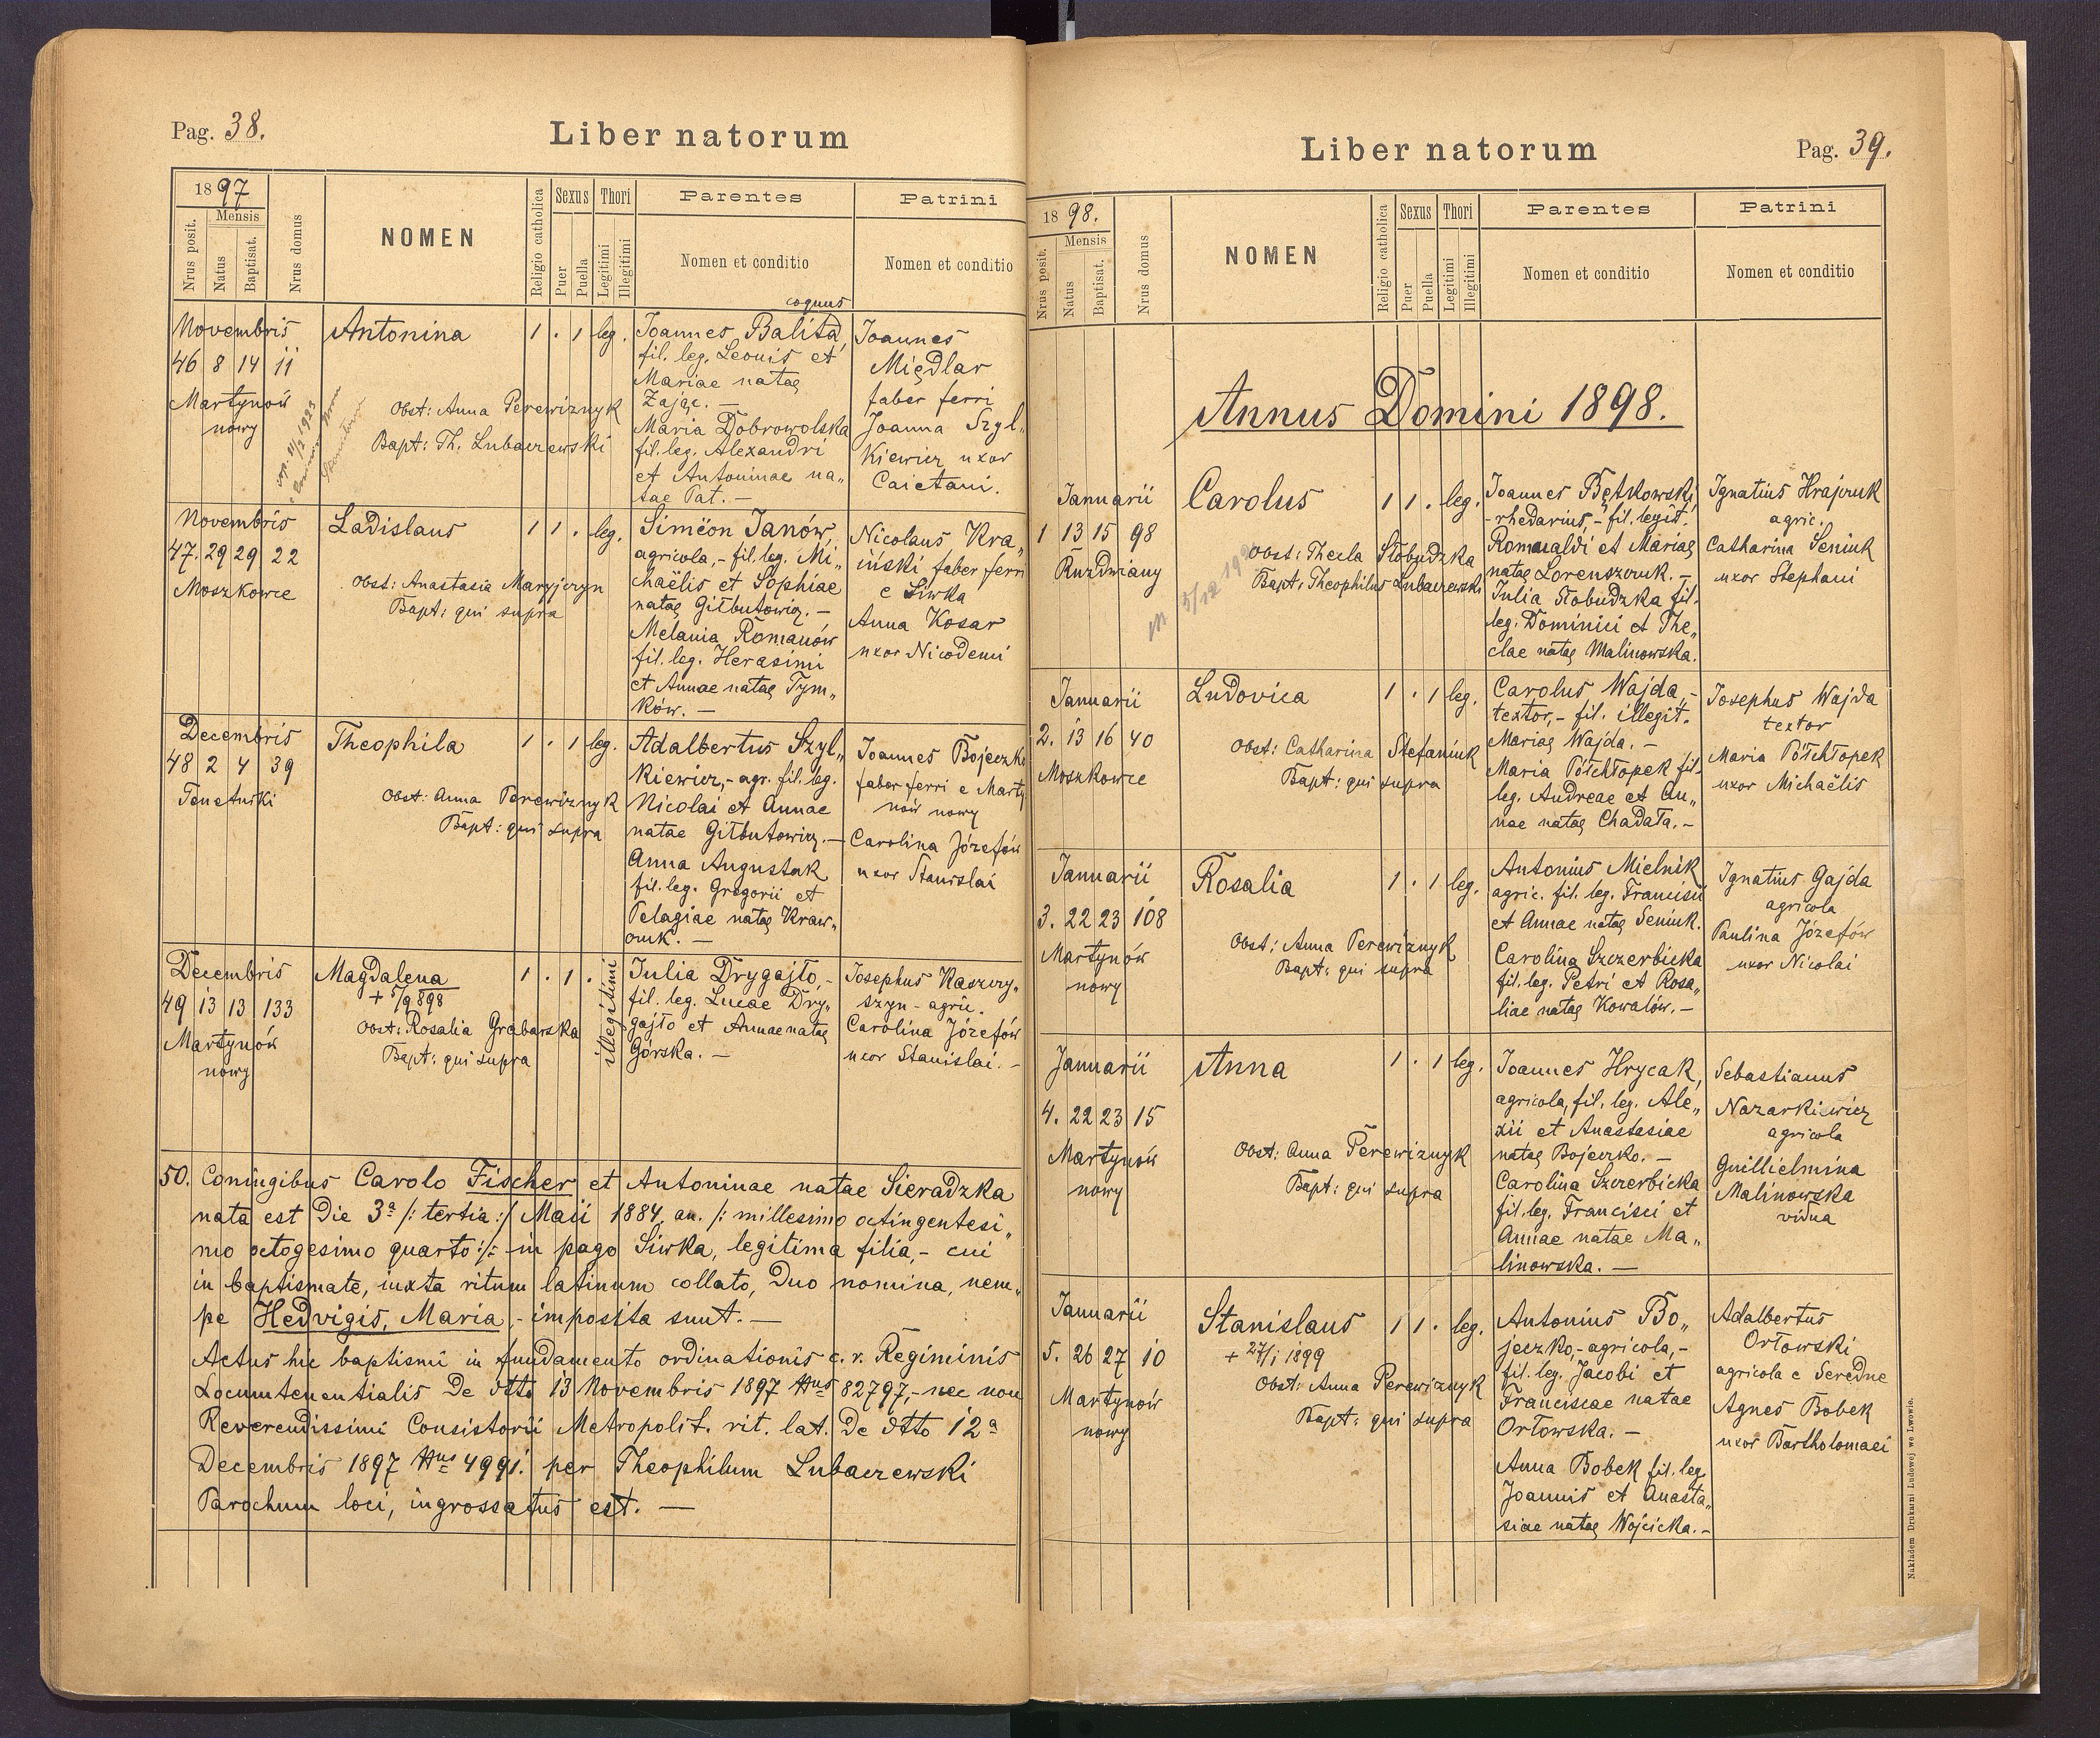 Pag. 38.
Liber natorum
1897
Nrus posit.
Mensis
Natus
Baptisat.
Nrus domus
NOMEN
Religio catholica
Sexus
Puer
Puella
Thori
Legitimi
Illegitimi
Parentes
Nomen et conditio
Patrini
Nomen et conditio
Novembris
46 8 14 11
Martynów
nowy
Antonina
Obst: Anna Perewiznyk
Bapt: Th. Lubaczewski
1 . 1 leg.
coquus
Joannes Balita,
fil. leg. Leonis et
Mariae natae
Zając. —
Maria Dobrowolska
fil. leg. Alexandri
et Antoninae na„
tae Pat. —
Joannes
Międlar
faber ferri
Joanna Szyl„
kiewicz uxor
Caietani.
Novembris
47. 29 29 22
Moszkowce
Ladislaus
Obst: Anastasia Maryjczyn
Bapt: qui supra
1 1 . leg.
Simëon Janów,
agricola, - fil. leg. Mi„
chaëlis et Sophiae
natae Giłbutowicz. —
Melania Romanów
fil. leg. Herasimi
et Annae natae Tym„
ków. —
Nicolaus Kra„
iński faber ferri
e Siwka
Anna Kosar
uxor Nicodemi
Decembris
48 2 4 39
Tenetniki
Theophila
Obst: Anna Perewiznyk
Bapt: qui supra
1 . 1 leg.
Adalbertus Szyl„
kiewicz, - agr. fil. leg.
Nicolai et Annae
natae Giłbutowicz. —
Anna Augustak
fil. leg. Gregorii et
Pelagiae natae Kraw„
czuk. —
Joannes Bojeczko
faber ferri e Marty
nów nowy
Carolina Józefów
uxor Stanislai
Decembris
49 13 13 133
Martynów
nowy
Magdalena
+ 5/9 898
Obst: Rosalia Grabarska
Bapt: qui supra
1 . 1 .
illegitimi
Julia Drygajło, -
fil. leg. Lucae Dry„
gajło et Annae natae
Górska. —
Josephus Kaszczy„
szyn - agric.
Carolina Józefów
uxor Stanislai. -
50. Coniugibus Carolo Fischer et Antoninae natae Sieradzka
nata est die 3ª /: tertia :/ Maii 1884, an. /: millesimo octingentesi„
mo octogesimo quarto :/ - in pago Siwka, legitima filia, - cui
in baptismate, iuxta ritum latinum collato, duo nomina, nem„
pe Hedvigis, Maria, - imposita sunt. —
Actus hic baptismi in fundamento ordinationis c. r. Regiminis
Locumtenentialis de dtto 13 Novembris 1897 Nus 82797, - nec non
Reverendissimi Consistorii Metropolit. rit. lat. de dtto 12ª
Decembris 1897 Nus 4991. per Theophilum Lubaczewski
Parochum loci, ingrossatus est. —
Liber natorum
Pag. 39.
1898.
Nrus posit.
Mensis
Natus
Baptisat.
Nrus domus
NOMEN
Religio catholica
Sexus
Puer
Puella
Thori
Legitimi
Illegitimi
Parentes
Nomen et conditio
Patrini
Nomen et conditio
Annus Domini 1898.
Januarii
1 13 15 98
Ruzdwiany
Carolus
Obst: Thecla Słobudzka
Bapt: Theophilus Lubaczewski
1 1 . leg.
Joannes Bętkowski,
- rhedarius, - fil. legit.
Romualdi et Mariae
natae Lorenszczuk. -
Julia Słobudzka fil.
leg. Dominici et The„
clae natae Malinowska.
Ignatius Hrajczuk
agric.
Catharina Seniuk
uxor Stephani
Januarii
2. 13 16 40
Moszkowce
Ludovica
Obst: Catharina Stefaniuk
Bapt: qui supra
1 . 1 leg.
Carolus Wajda, -
textor, - fil. illegit.
Mariae Wajda. —
Maria Półchłopek fil.
leg. Andreae et An„
nae natae Chadała. -
Josephus Wajda
textor
Maria Półchłopek
uxor Michaëlis
Januarii
3. 22 23 108
Martynów
nowy
Rosalia
Obst: Anna Perewiznyk
Bapt: qui supra
1 . 1 leg.
Antonius Mielnik
agric. fil. leg. Francisci
et Annae natae Seniuk.
Carolina Szczerbicka
fil. leg. Petri et Rosa„
liae natae Kowalów. -
Ignatius Gajda
agricola
Paulina Józefów
uxor Nicolai
Januarii
4. 22 23 15
Martynów
nowy
Anna
Obst: Anna Perewiznyk
Bapt: qui supra
1 . 1 leg.
Joannes Hrycak,
agricola, fil. leg. Ale„
xii et Anastasiae
natae Bojeczko. —
Carolina Szczerbicka
fil. leg. Francisci et
Annae natae Ma„
linowska. —
Sebastianus
Nazarkiewicz
agricola
Guillielmina
Malinowska
vidua
Januarii
5. 26 27 10
Martynów
nowy
Stanislaus
+ 27/1 1899
Obst: Anna Perewiznyk
Bapt: qui supra
1 1 . leg.
Antonius Bo„
jeczko, - agricola, -
fil. leg. Jacobi et
Franciscae natae
Orłowska. —
Anna Bobek fil. leg.
Joannis et Anasta„
siae natae Wojcicka. -
Adalbertus
Orłowski
agricola e Seredne
Agnes Bobek
uxor Bartholomaei
Nakładem Drukarni Ludowej we Lwowie.